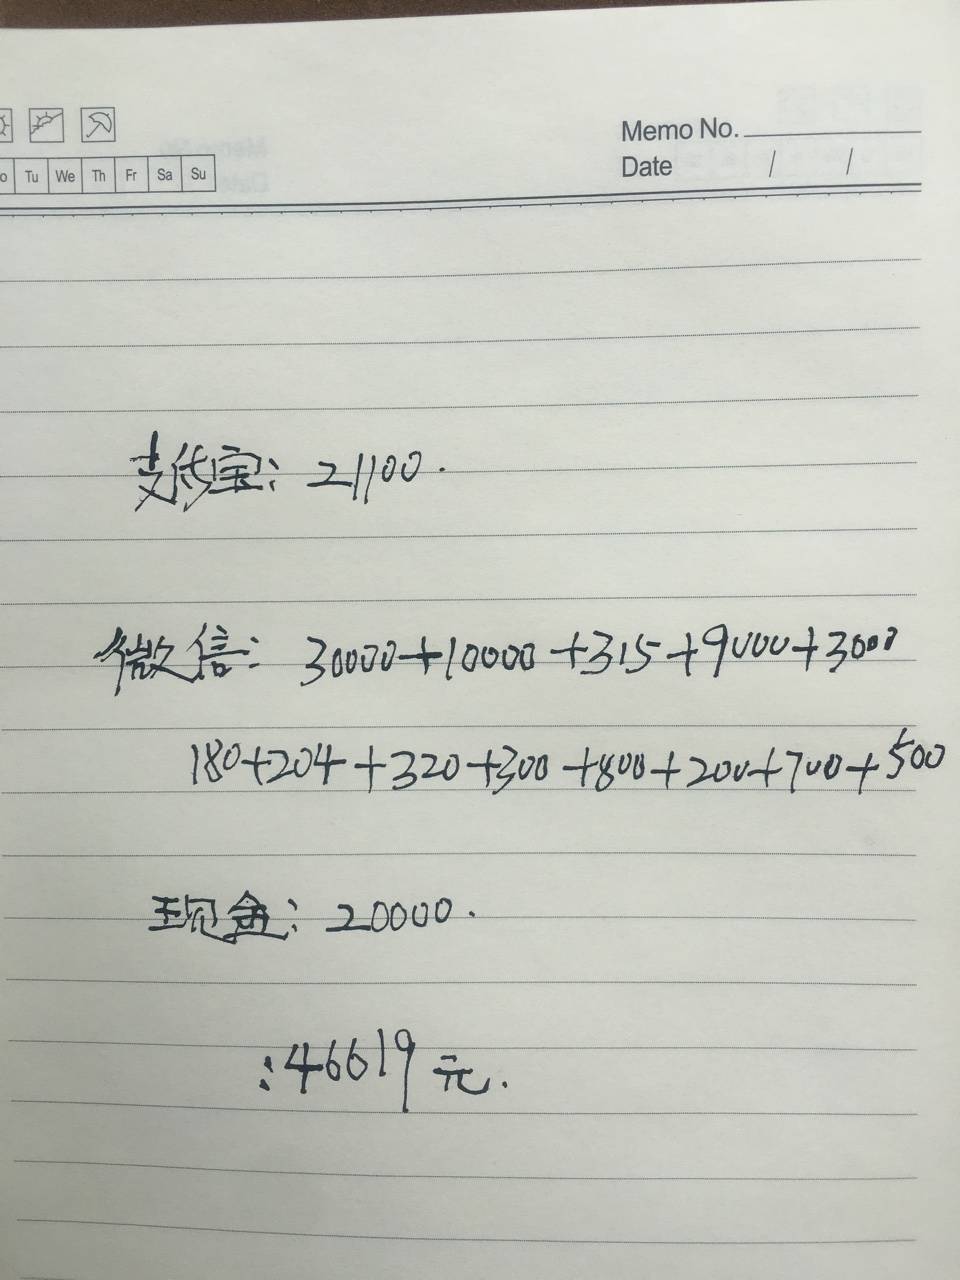 Memo No.
Tu We Th Fr Sa Su
Date / /
支付宝: 21100.
微信: 30000+10000+315+9000+3000
180+204+320+300+800+200+700+500
现金: 20000.
:46619元.